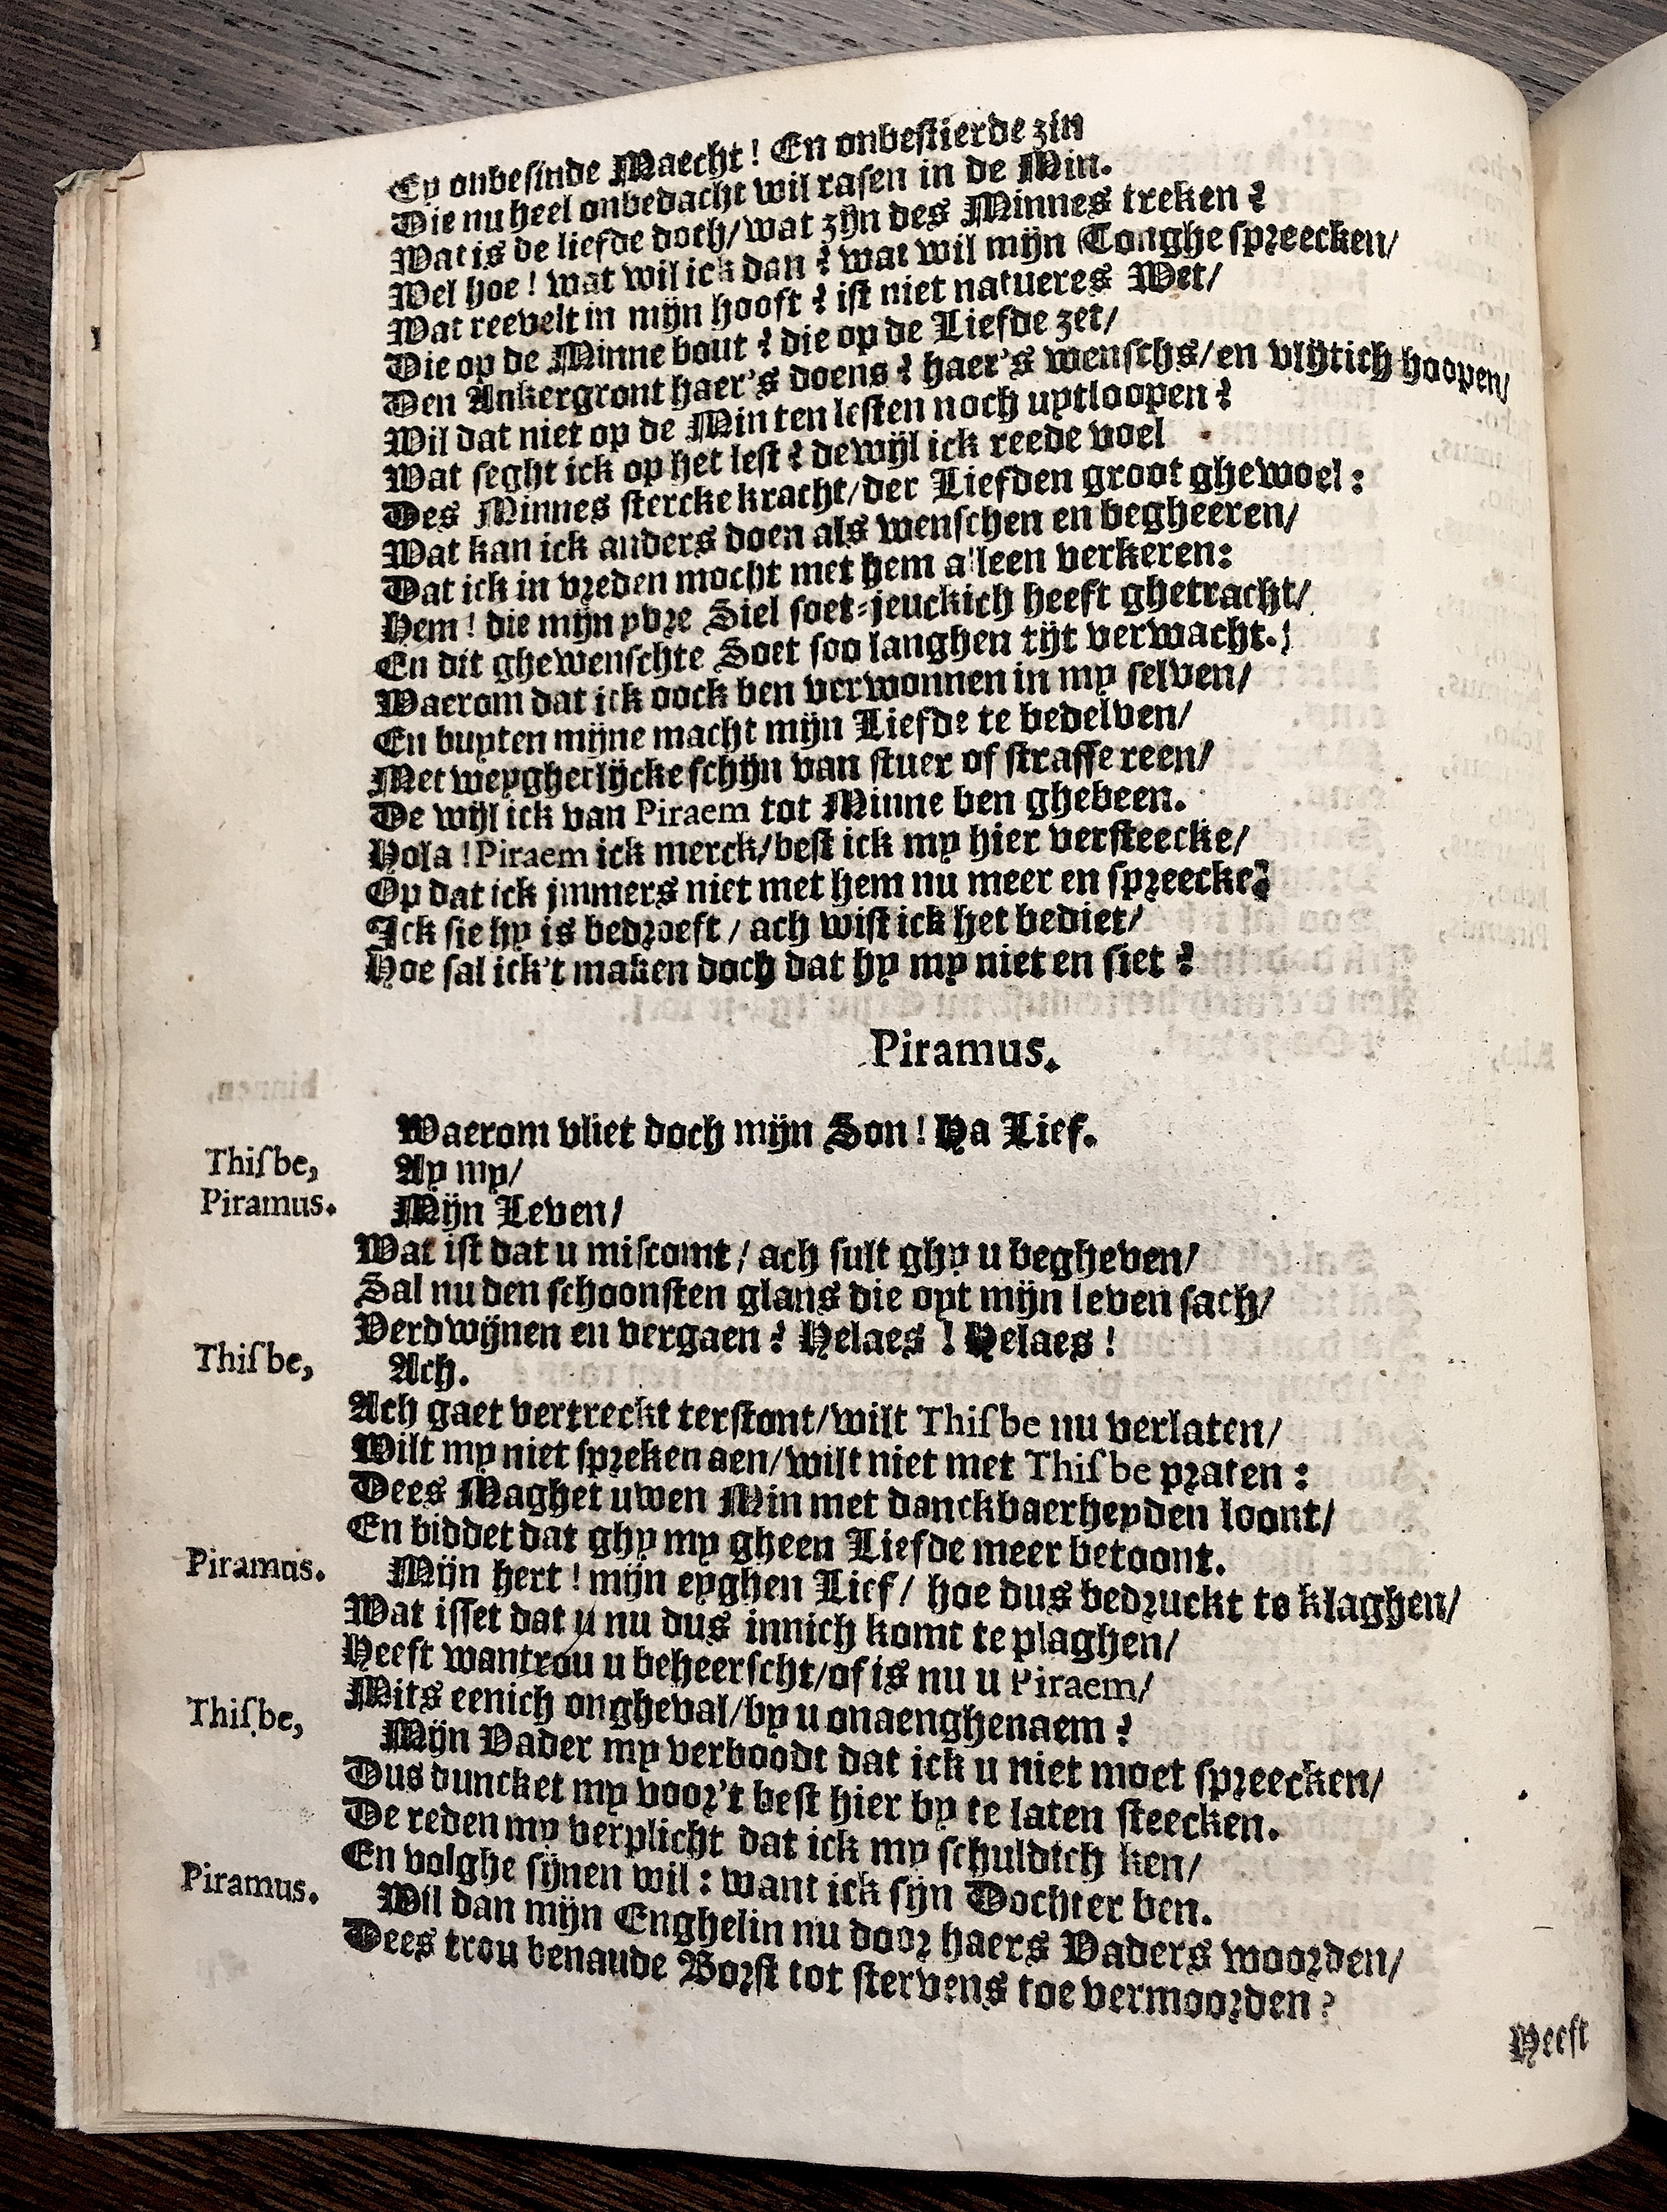 Ey onbesinde Maecht! En onbestierde zin
Die nu heel onbedacht wil rasen in de Min.
Wat is de liefde doch/wat zijn des Minnes treken?
Wel hoe! wat wil ick dan? wat wil mijn Tonghe spreecken/
Wat reevelt in mijn hooft? ist niet natueres Wet/
Die op de Minne bout? die op de Liefde zet/
Den Ankergront haer's doens? haer's wenschs/en vlijtich hoopen/
Wil dat niet op de Min ten lesten noch uytloopen?
Wat seght ick op het lest? dewijl ick reede voel
Des Minnes stercke kracht/der Liefden groot ghewoel:
Wat kan ick anders doen als wenschen en begheeren/
Dat ick in vreden mocht met hem alleen verkeren:
Hem! die mijn yvre Siel soet-jeuckich heeft ghetracht/
En dit ghewenschte Soet soo langhen tijt verwacht.
Waerom dat ick oock ben verwonnen in my selven/
En buyten mijne macht mijn Liefde te bedelven/
Met weygherlijcke schijn van stuer of straffe reen/
De wijl ick van Piraem tot Minne ben ghebeen.
Hola! Piraem ick merck/best ick my hier versteecke/
Op dat ick jmmers niet met hem nu meer en spreecke?
Ick sie hy is bedroeft/ ach wist ick het bediet/
Hoe sal ick't maken doch dat hy my niet en siet?
Piramus.
Waerom vliet doch mijn Son! Ha Lief.
Thisbe, Ay my/
Piramus. Mijn Leven/
Wat ist dat u miscomt/ ach sult ghy u begheven/
Sal nu den schoonsten glans die oyt mijn leven sach/
Verdwijnen en vergaen? Helaes! Helaes!
Thisbe, Ach.
Ach gaet vertreckt terstont/wilt Thisbe nu verlaten/
Wilt my niet spreken aen/wilt niet met Thisbe praten:
Dees Maghet uwen Min met danckbaerheyden loont/
En biddet dat ghy my gheen Liefde meer betoont.
Piramus. Mijn hert! mijn eyghen Lief/ hoe dus bedruckt te klaghen/
Wat isset dat u nu dus innich komt te plaghen/
Heeft wantrou u beheerscht/of is nu u Piraem/
Mits eenich ongheval/by u onaenghenaem?
Thisbe, Mijn Vader my verboodt dat ick u niet moet spreecken/
Dus duncket my voor't best hier by te laten steecken.
De reden my verplicht dat ick my schuldich ken/
En volghe sijnen wil: want ick sijn Dochter ben.
Piramus. Wil dan mijn Enghelin nu door haers Vaders woorden/
Dees trou benaude Borst tot stervens toe vermoorden?
Heeft